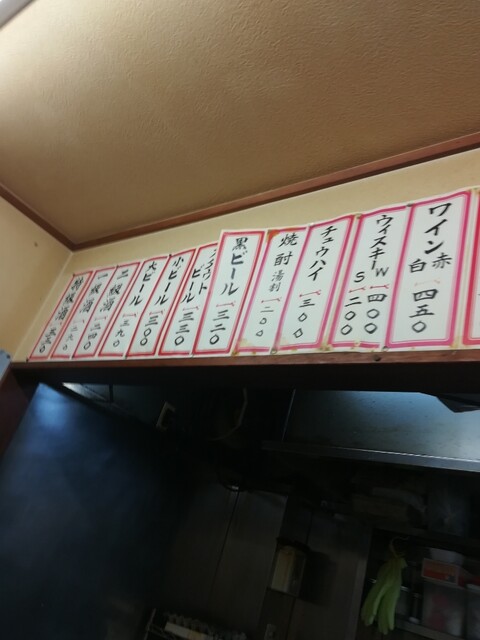 ワイン 赤 白 四五〇
ウィスキー W 四〇〇 S 二〇〇
チュウハイ 三〇〇
焼酎 湯割 二〇〇
黒ビール 三二〇
ビール 三三〇
小ビール 三三〇
大ビール
二級酒 一九〇
一級酒 二四〇
特級酒